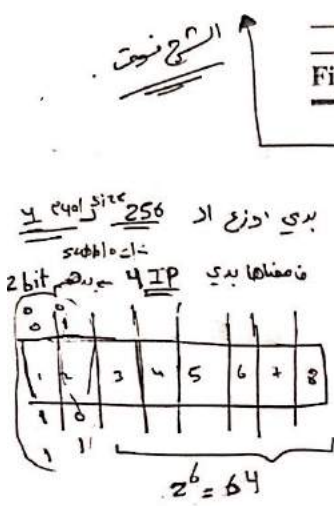 الشرح فوق
Fi
بدي اوزع الـ 256 size لـ 4
subblocks
فمعناها بدي 4 IP بدهم 2 bit
0 0
0 1
1 2 3 4 5 6 7 8
1 0
1 1
2⁶ = 64